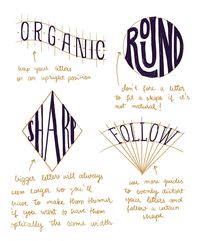 ORGANIC
keep your letters
in an upright position
ROUND
don't force a letter
to fit a shape if it's
not natural!
SHARP
bigger letters will always
seem larger so you'll
have to make them thinner
if you want to have them
optically the same width
FOLLOW
use more guides
to evenly distort
your letters and
follow a certain
shape